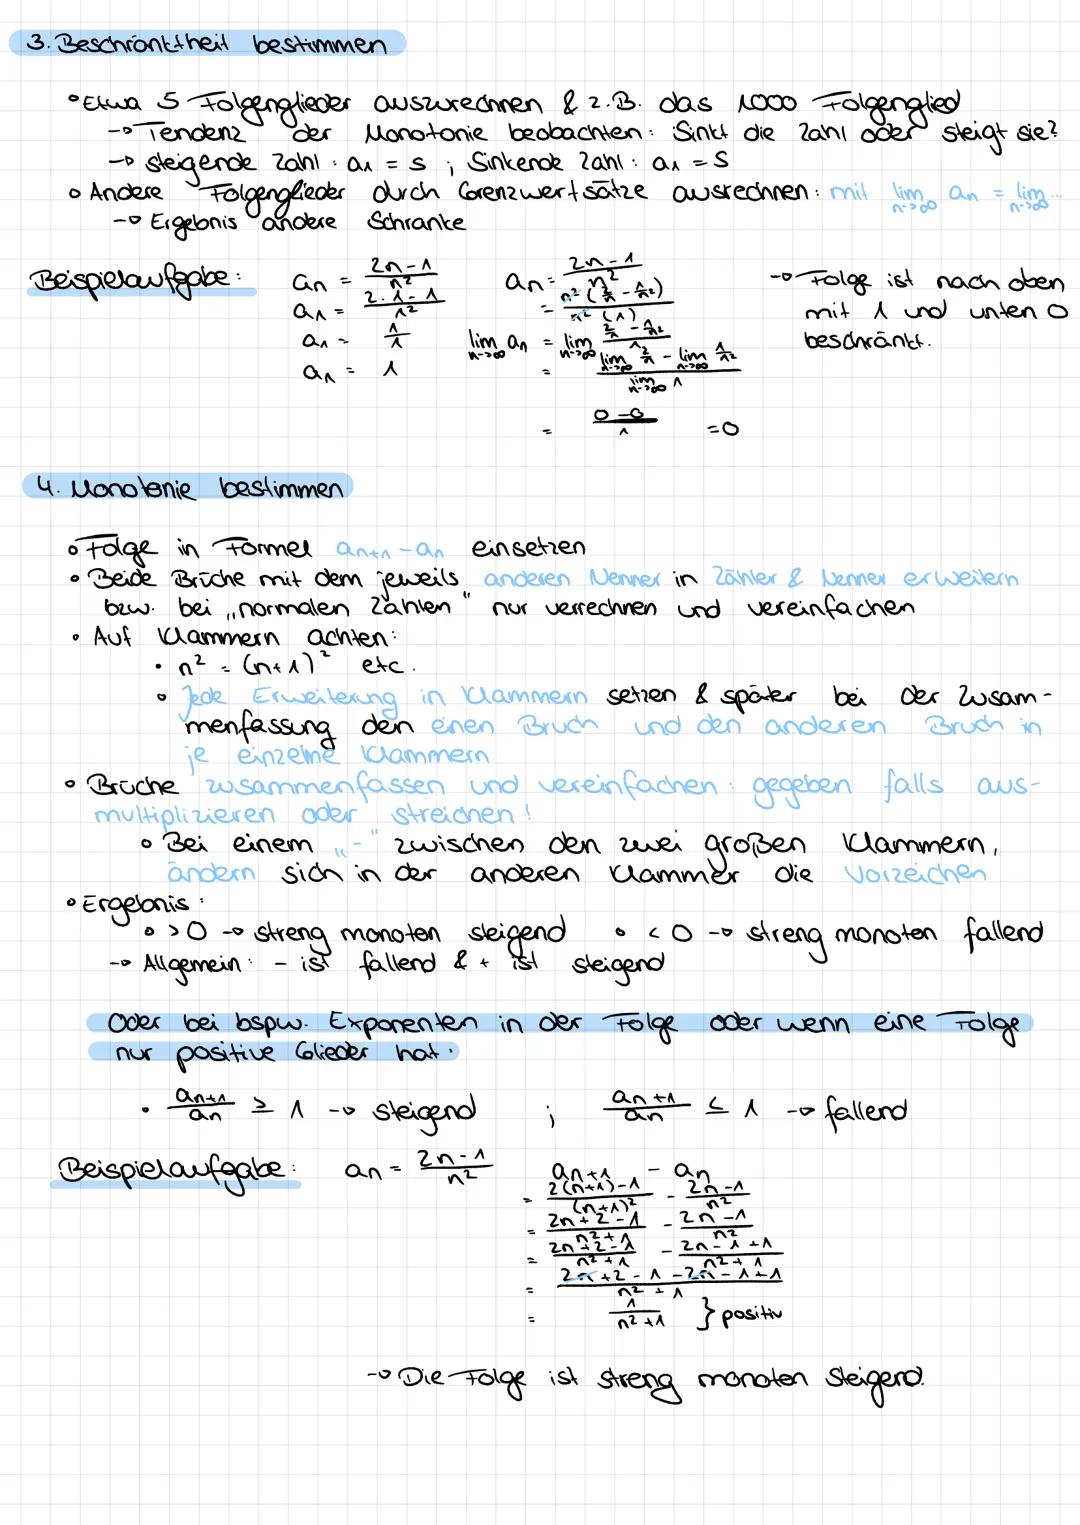 3. Beschränktheit bestimmen
• Etwa 5 Folgenglieder auszurechnen & z.B. das 1000 Folgenglied
→ Tendenz der Monotonie beobachten: Sinkt die Zahl oder steigt sie?
→ steigende Zahl: a₁ = s ; Sinkende Zahl: a₁ = S
• Andere Folgenglieder durch Grenzwertsätze ausrechnen: mit lim n->∞ an = lim n->∞ ...
→ Ergebnis andere Schranke
Beispielaufgabe:
an = (2n-1)/n²
a₁ = (2·1-1)/1²
a₁ = 1/1
a₁ = 1
an = (2n-1)/n²
= n²(2/n - 1/n²)/n²(1)
lim n->∞ an = lim n->∞ (2/n - 1/n²)/1
= (lim n->∞ 2/n - lim n->∞ 1/n²)/lim n->∞ 1
= (0-0)/1 = 0
→ Folge ist nach oben
mit 1 und unten 0
beschränkt.
4. Monotonie bestimmen
• Folge in Formel an+1 - an einsetzen
• Beide Brüche mit dem jeweils anderen Nenner in Zähler & Nenner erweitern
bzw. bei „normalen Zahlen" nur verrechnen und vereinfachen
• Auf Klammern achten:
• n² = (n+1)² etc.
• Jede Erweiterung in Klammern setzen & später bei der Zusam-
menfassung den einen Bruch und den anderen Bruch in
je einzelne Klammern
• Brüche zusammenfassen und vereinfachen: gegeben falls aus-
multiplizieren oder streichen!
• Bei einem „-" zwischen den zwei großen Klammern,
ändern sich in der anderen Klammer die Vorzeichen
• Ergebnis:
• > 0 → streng monoton steigend • < 0 → streng monoton fallend
→ Allgemein: - ist fallend & + ist steigend
Oder bei bspw. Exponenten in der Folge oder wenn eine Folge
nur positive Glieder hat:
• an+1/an ≥ 1 → steigend ; an+1/an ≤ 1 → fallend
Beispielaufgabe: an = (2n-1)/n²
an+1 - an
= (2(n+1)-1)/(n+1)² - (2n-1)/n²
= (2n+2-1)/(n²+1) - (2n-1)/n²
= (2n+2-1)/(n²+1) - (2n-1+1)/(n²+1)
= (2n+2-1-2n-1+1)/(n²+1)
= 1/(n²+1) } positiv
→ Die Folge ist streng monoton steigend.